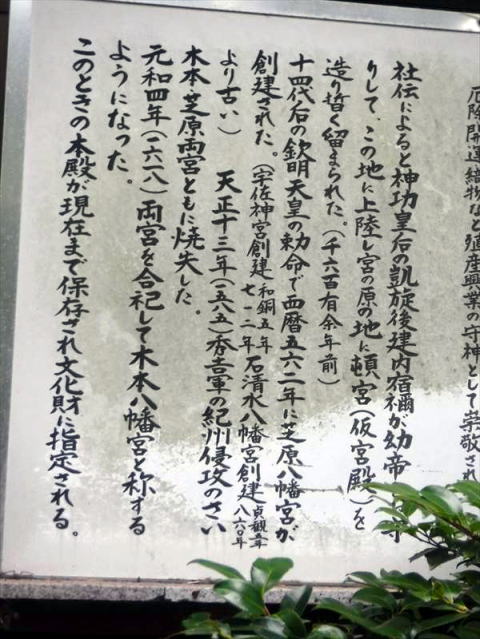 厄除開運縁物など殖産興業の守神として崇敬され
社伝によると神功皇后の凱旋後建内宿禰が幼帝
りして、この地に上陸し宮の原の地に頓宮(仮宮殿)を
造り暫く留まられた。(千六百有余年前)
十四代后の欽明天皇の勅命で西暦五六二年に芝原八幡宮が
創建された。(宇佐神宮創建和銅五年七一二年石清水八幡宮創建貞観二年八六〇年
より古い) 天正十三年(一五八五)秀吉軍の紀州侵攻のさい
木本・芝原両宮ともに焼失した。
元和四年(一六一八)両宮を合祀して木本八幡宮と称する
ようになった。
このときの本殿が現在まで保存され文化財に指定される。